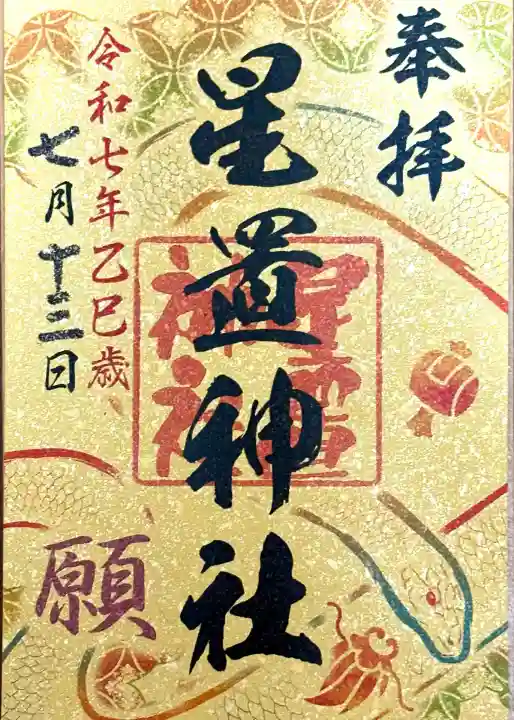 奉拝
星置神社
星置神社
令和七年乙巳歳
七月十三日
願